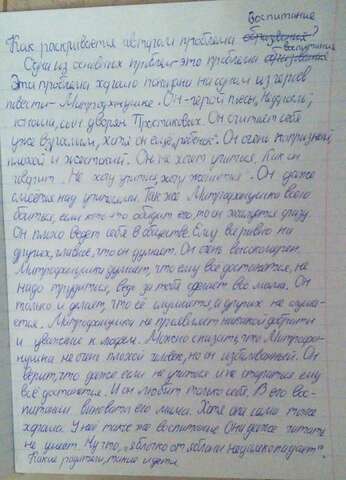 воспитание
Как раскрывается автором проблема образования?
воспитания
Одна из основных проблем - это проблема образования
Эта проблема хорошо показана на одном из героев
повести - Митрофанушке. Он - герой пьесы "Недросль",
сын дворян Простаковых. Он считает себя
уже взрослым, хотя он ещё ребёнок. Он очень капризный
плохой и жестокий. Он не хочет учится. Как он
говорит "Не хочу учится, хочу женится". Он даже
смеётся над учителями. Так же Митрофанушка всего
боится, если кто-то обидит его, то он жалуется сразу.
Он плохо ведет себя в обществе. Ему всё равно на
других, главное, что он думает. Он очень высокомерен.
Митрофанушка думает, что ему всё достанется, не
надо трудится, ведь за того сделает всё мама. Он
только и делает, что её слушается, а других не слуша-
ется. Митрофанушка не проявляет никакой доброты
и уважение к людям. Можно сказать, что Митрофа-
нушка не очень плохой человек, но он избалованный. Он
верит, что даже если не учится и не трудится ему
всё достанется. И он любит только себя. В его вос-
питании виновата его мама. Хотя она сама тоже
хороша. У неё такое же воспитание Она даже читать
не умеет. Ну что, "яблоко от яблони недалеко падает".
Какие родители, такие и дети.